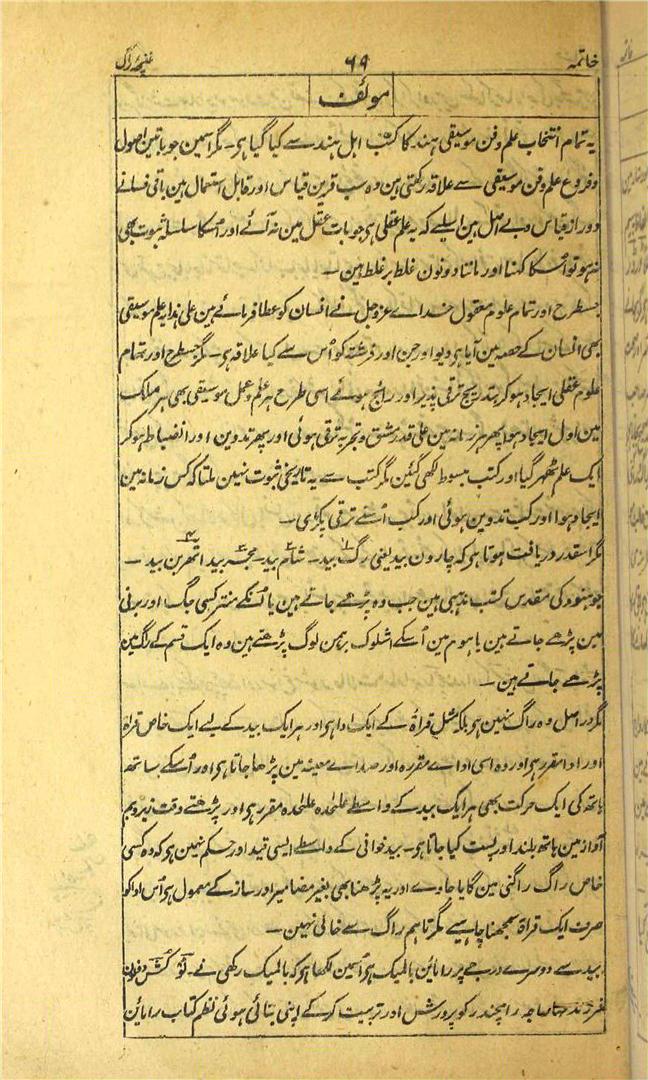 خاتمہ ۶۹ غنچۂ راگ
مولف
یہ تمام انتخاب علم و فن موسیقی ہند کا کتب اہل ہند سے کیا گیا ہی۔ مگر اسمین جو باتین اصول
و فروع علم و فن موسیقی سے علاقہ رکھتی ہین وہ سب قرین قیاس اور قابل استعمال ہین باقی فسانے
دور از قیاس و بے اصل ہین اسلیے کہ یہ علم عقلی ہی جو بات عقل مین نہ آئے اور اُسکا سلسلۂ ثبوت بھی
نہو تو اُسکا کہنا اور ماننا دونون غلط بر غلط ہین۔
جسطرح اور تمام علوم معقول خداے عز وجل نے انسان کو عطا فرمائے ہین علی ہذا یہ علم موسیقی
بھی انسان کے حصہ مین آیا ہی دیو اور جن اور فرشتہ کو اُس سے کیا علاقہ ہی۔ مگر جسطرح اور تمام
علوم عقلی ایجاد ہو کر بتدریج ترقی پذیر اور رائج ہوئے اسی طرح ہر علم و عمل موسیقی بھی ہر ملک
مین اول ایجاد ہوا پھر ہر زمانہ مین علی قدر مشق و تجربہ ترقی ہوئی اور پھر تدوین اور انضباط ہو کر
ایک علم ٹھہر گیا اور کتب مبسوط لکھی گئین مگر کتب سے یہ تاریخی ثبوت نہین ملتا کہ کس زمانہ مین
ایجاد ہوا اور کب تدوین ہوئی اور کب اُسنے ترقی پکڑی۔
مگر اسقدر دریافت ہوتا ہی کہ چارون بید یعنی رگ بید۔ شام بید۔ یجر بید اتھربن بید۔
جو ہنود کی مقدس کتب مذہبی ہین جب وہ پڑھے جاتے ہین یا اُنکے منتر کسی جگ اور برنی
مین پڑھے جاتے ہین یا ہوم مین اُسکے اشلوک برہمن لوگ پڑھتے ہین وہ ایک قسم کے راگ مین
پڑھے جاتے ہین۔
مگر دراصل وہ راگ نہین ہی بلکہ مثل قراۃ کے ایک ادا ہی اور ہر ایک بید کے لیے ایک خاص قراۃ
اور ادا مقرر ہی اور وہ اسی اداے مقررہ اور صداے معینہ مین پڑھا جاتا ہی اور اُسکے ساتھ
ہاتھ کی ایک حرکت بھی ہر ایک بید کے واسطے علحدہ علحدہ مقرر ہی اور پڑھتے وقت زیر و بم
آواز مین ہاتھ بلند اور پست کیا جاتا ہی۔ بید خوانی کے واسطے ایسی قید اور حکم نہین ہی کہ وہ کسی
خاص راگ راگنی مین گایا جاوے اور یہ پڑھنا بھی بغیر مضامیر اور ساز کے معمول ہی اُس ادا کو
صرف ایک قراۃ سمجھنا چاہیے مگر تاہم راگ سے خالی نہین۔
بید سے دوسرے درجے پر راماین بالمیک ہی اُسمین لکھا ہی کہ بالمیک رکھی نے۔ لَوٗ کُش دونون
فرزند مہاراجہ رامچندر کو پرورش اور تربیت کر کے اپنی بنائی ہوئی نظم کتاب راماین